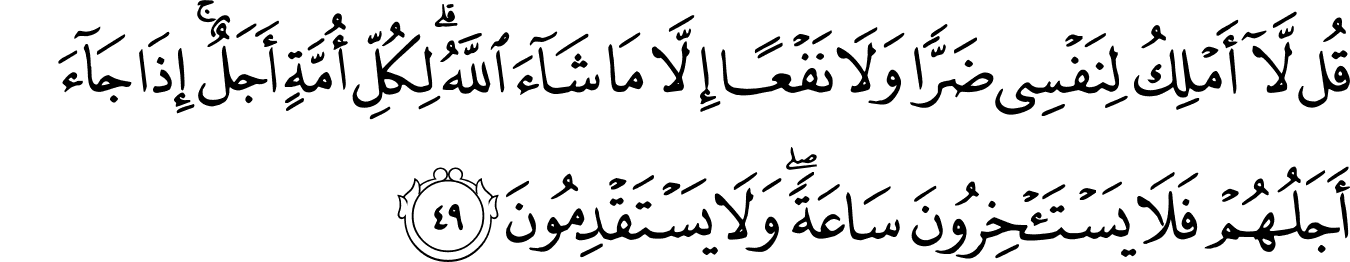 قُل لَّآ أَمْلِكُ لِنَفْسِى ضَرًّا وَلَا نَفْعًا إِلَّا مَا شَآءَ ٱللَّهُ ۗ لِكُلِّ أُمَّةٍ أَجَلٌ ۚ إِذَا جَآءَ
أَجَلُهُمْ فَلَا يَسْتَـْٔخِرُونَ سَاعَةً ۖ وَلَا يَسْتَقْدِمُونَ ٤٩